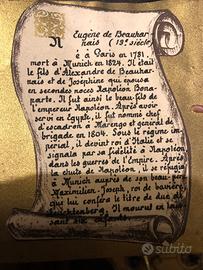 Eugène de Beauhar-
nais (19e siècle)
Né à Paris en 1781,
mort à Munich en 1824. Il était
le fils d'Alexandre de Beauhar-
nais et de Josephine qui épousa
en secondes noces Napoléon Bona-
parte. Il fut ainsi le beau-fils de
l'empereur Napoléon. Après avoir
servi en Egypte, il fut nommé chef
d'escadron à Marengo et général de
brigade en 1804. Sous le régime im-
périal, il devint roi d'Italie et se
signala par sa fidélité à Napoléon
dans les guerres de l'Empire. Après
la chute de Napoléon, il se réfugia
à Munich auprès de son beau-
Maximilien-Joseph, roi de bavière,
qui lui conféra le titre de duc de
Leuchtenberg. Il mourut en
six enfants.
subito